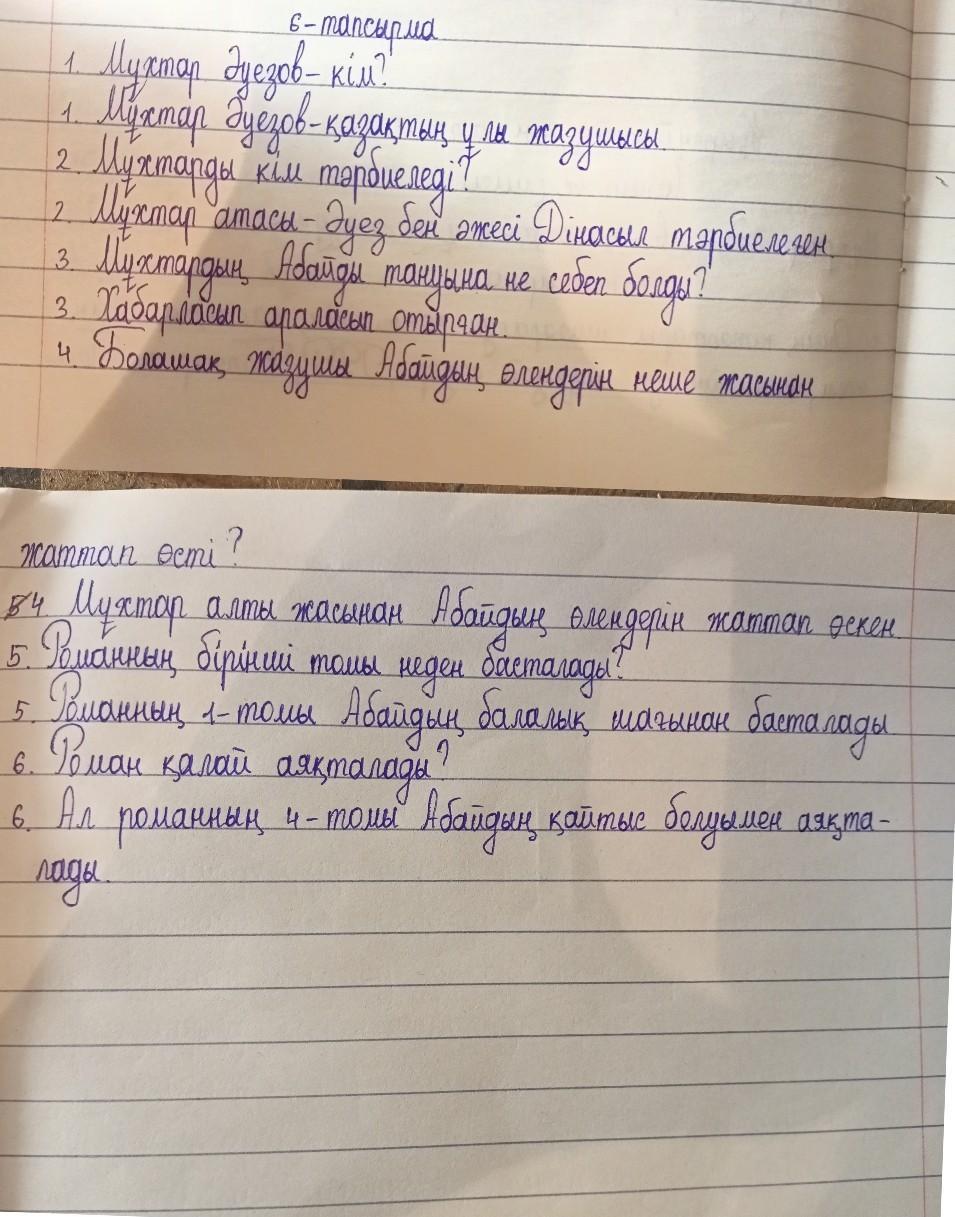 6-тапсырма
1. Мұхтар Әуезов-кім?
1. Мұхтар Әуезов-қазақтың ұлы жазушысы
2. Мұхтарды кім тәрбиеледі?
2. Мұхтар атасы-Әуез бен әжесі Дінасыл тәрбиелеген
3. Мұхтардың Абайды тануына не себеп болды?
3. Хабарласып араласып отырған.
4. Болашақ жазушы Абайдың өлеңдерін неше жасынан
жаттап өсті?
4 Мұхтар алты жасынан Абайдың өлеңдерін жаттап өскен
5. Романның бірінші томы неден басталады?
5. Романның 1-томы Абайдың балалық шағынан басталады
6. Роман қалай аяқталады?
6. Ал романның 4-томы Абайдың қайтыс болуымен аяқта-
лады.